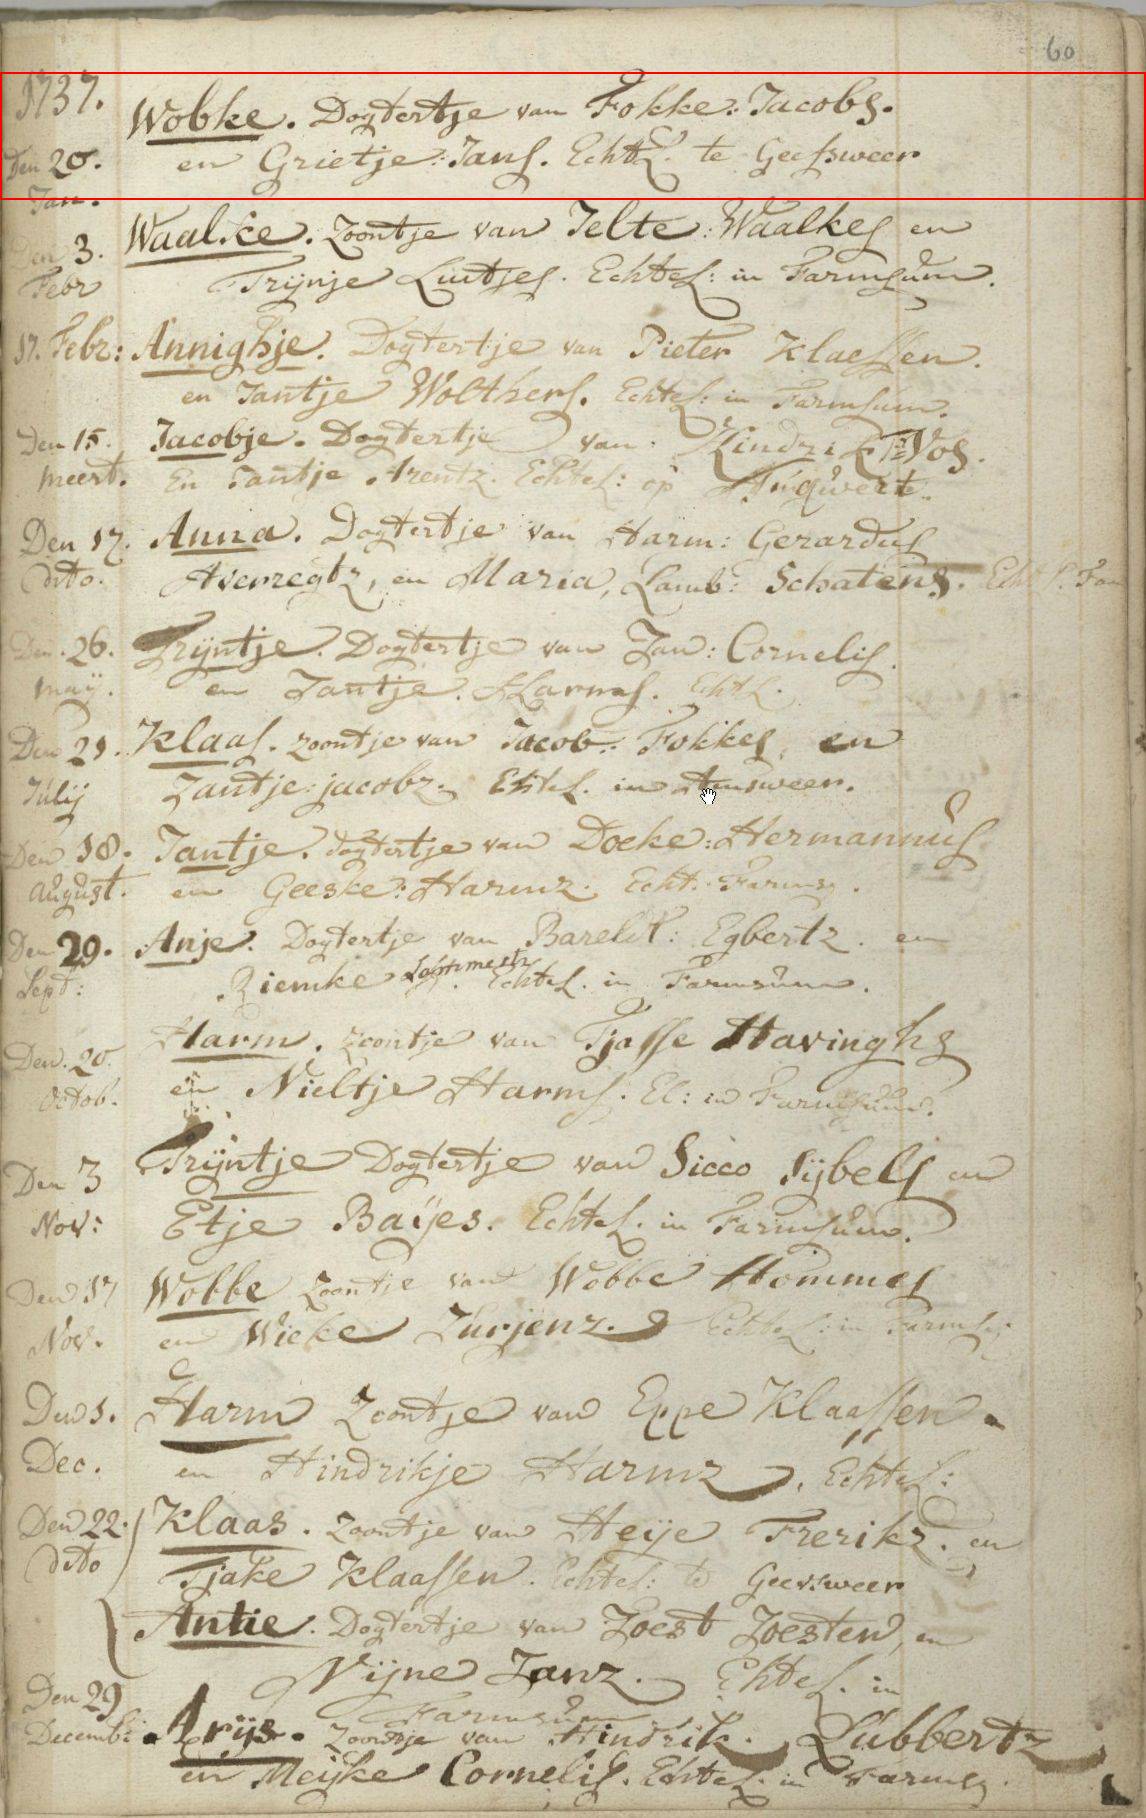 60
1737.
Wobke. Dogtertje van Fokke: Jacobs.
Den 20. en Grietje: Jans. Echtel. te Geefsweer
Jan.
Waalke. Zoontje van Jelte: Waalkes en
Den 3.
Febr Trijnje Luitjes. Echtel: in Farmsum.
17. Febr: Annighje. Dogtertje van Pieter Klaessen.
en Jantje Wolthers. Echtel: in Farmsum.
Den 15. Jacobje. Dogtertje van Hindrik Vos.
Meert. En Jantje Arentz. Echtel: op
Den 17. Anna. Dogtertje van Harm: Gerardus
dito. Averregtz, en Maria, Lamb: Schatens. Echtel. Far
Den. 26. Trijntje. Dogtertje van Jan: Cornelis.
may. en Jantje. Harms. Echtl.
Den 21. Klaas. zoontje van Jacob: Fokkes, en
Julij Jantje: jacobz. Echtel. in
Den 18. Jantje. dogtertje van Doeke: Hermannus
August. en Geeske: Harmz. Echt: Farms.
Den 29. Anje. Dogtertje van Bareldt: Egbertz. en
Sept: Riemke Echtel. in Farmsum.
Harm. zoontje van Tjasse Havinghs
Den. 20
Octob. en Nieltje Harms. El: in Farmsum.
Trijntje Dogtertje van Sicco Sijbels en
Den 3
Nov: Etje Baijes. Echtel. in Farmsum.
Den 17 Wobbe zoontje van Wobbe Hommes
Nov. en Wieke Jurjenz. Echtel: in Farms:
Den 1. Harm Zoontje van Eppe Klaassen.
Dec. en Hindrikje Harmz, Echtel:
Den 22. Klaas. zoontje van Heije Frerikz. en
dito Tjake Klaassen. Echtel: te Geevsweer
Antie. Dogtertje van Joest Joesten, en
Nijne Janz. Ehtel. in
Den 29 Farmsum
Decemb: Arijs. zoontje van Hindrik. Lubbertz
en Meijke Cornelis. Echtel. in Farms.